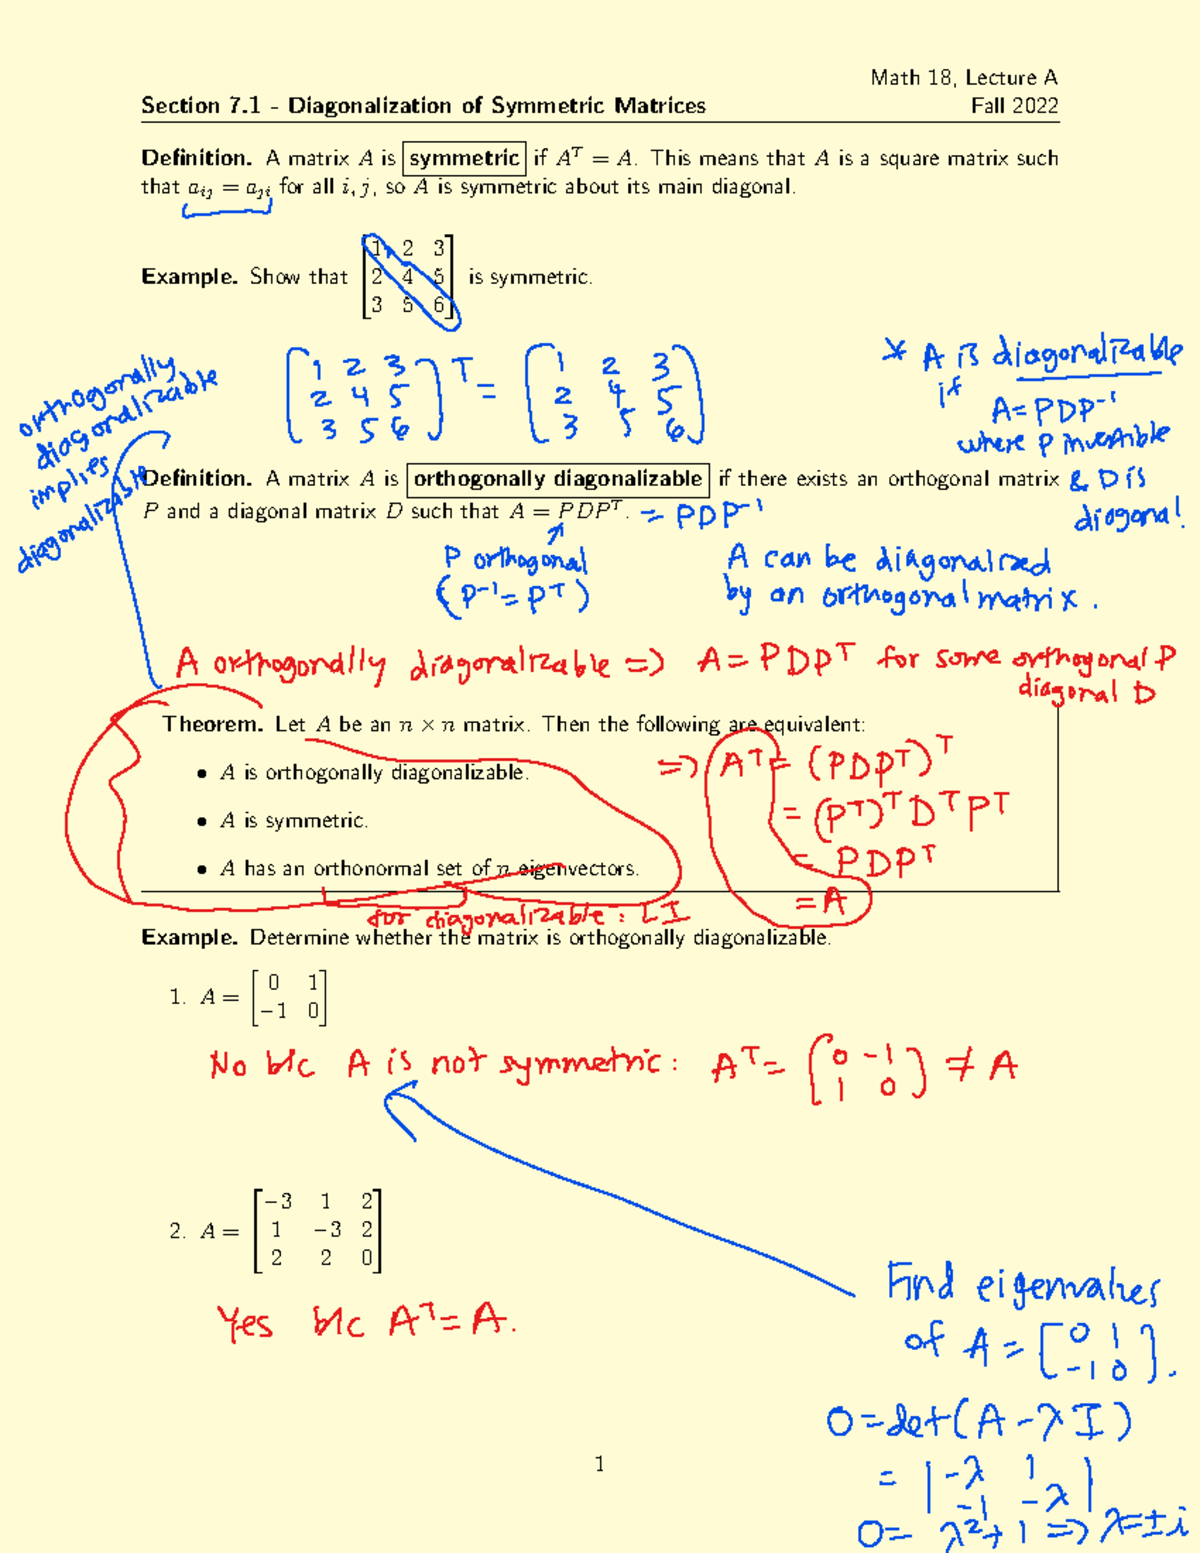 Math 18, Lecture A
Section 7.1 - Diagonalization of Symmetric Matrices Fall 2022
Definition. A matrix A is symmetric if Aᵀ = A. This means that A is a square matrix such
that aᵢⱼ = aⱼᵢ for all i, j, so A is symmetric about its main diagonal.
Example. Show that [1 2 3; 2 4 5; 3 5 6] is symmetric.
[1 2 3; 2 4 5; 3 5 6]ᵀ = [1 2 3; 2 4 5; 3 5 6]
* A is diagonalizable
if A = PDP⁻¹
where P invertible
& D is
diagonal.
orthogonally
diagonalizable
implies
diagonalizable
Definition. A matrix A is orthogonally diagonalizable if there exists an orthogonal matrix
P and a diagonal matrix D such that A = PDPᵀ. = PDP⁻¹
P orthogonal
(P⁻¹ = Pᵀ)
A can be diagonalized
by an orthogonal matrix.
A orthogonally diagonalizable => A = PDPᵀ for some orthogonal P
diagonal D
Theorem. Let A be an n × n matrix. Then the following are equivalent:
• A is orthogonally diagonalizable.
• A is symmetric.
• A has an orthonormal set of n eigenvectors.
=> Aᵀ = (PDPᵀ)ᵀ
= (Pᵀ)ᵀDᵀPᵀ
= PDPᵀ
= A
for diagonalizable: LI
Example. Determine whether the matrix is orthogonally diagonalizable.
1. A = [0 1; −1 0]
No b/c A is not symmetric: Aᵀ = [0 -1; 1 0] ≠ A
2. A = [−3 1 2; 1 −3 2; 2 2 0]
Yes b/c Aᵀ = A.
Find eigenvalues
of A = [0 1; -1 0].
0 = det(A - λI)
= |-λ 1; -1 -λ|
0 = λ² + 1 => λ = ±i
1